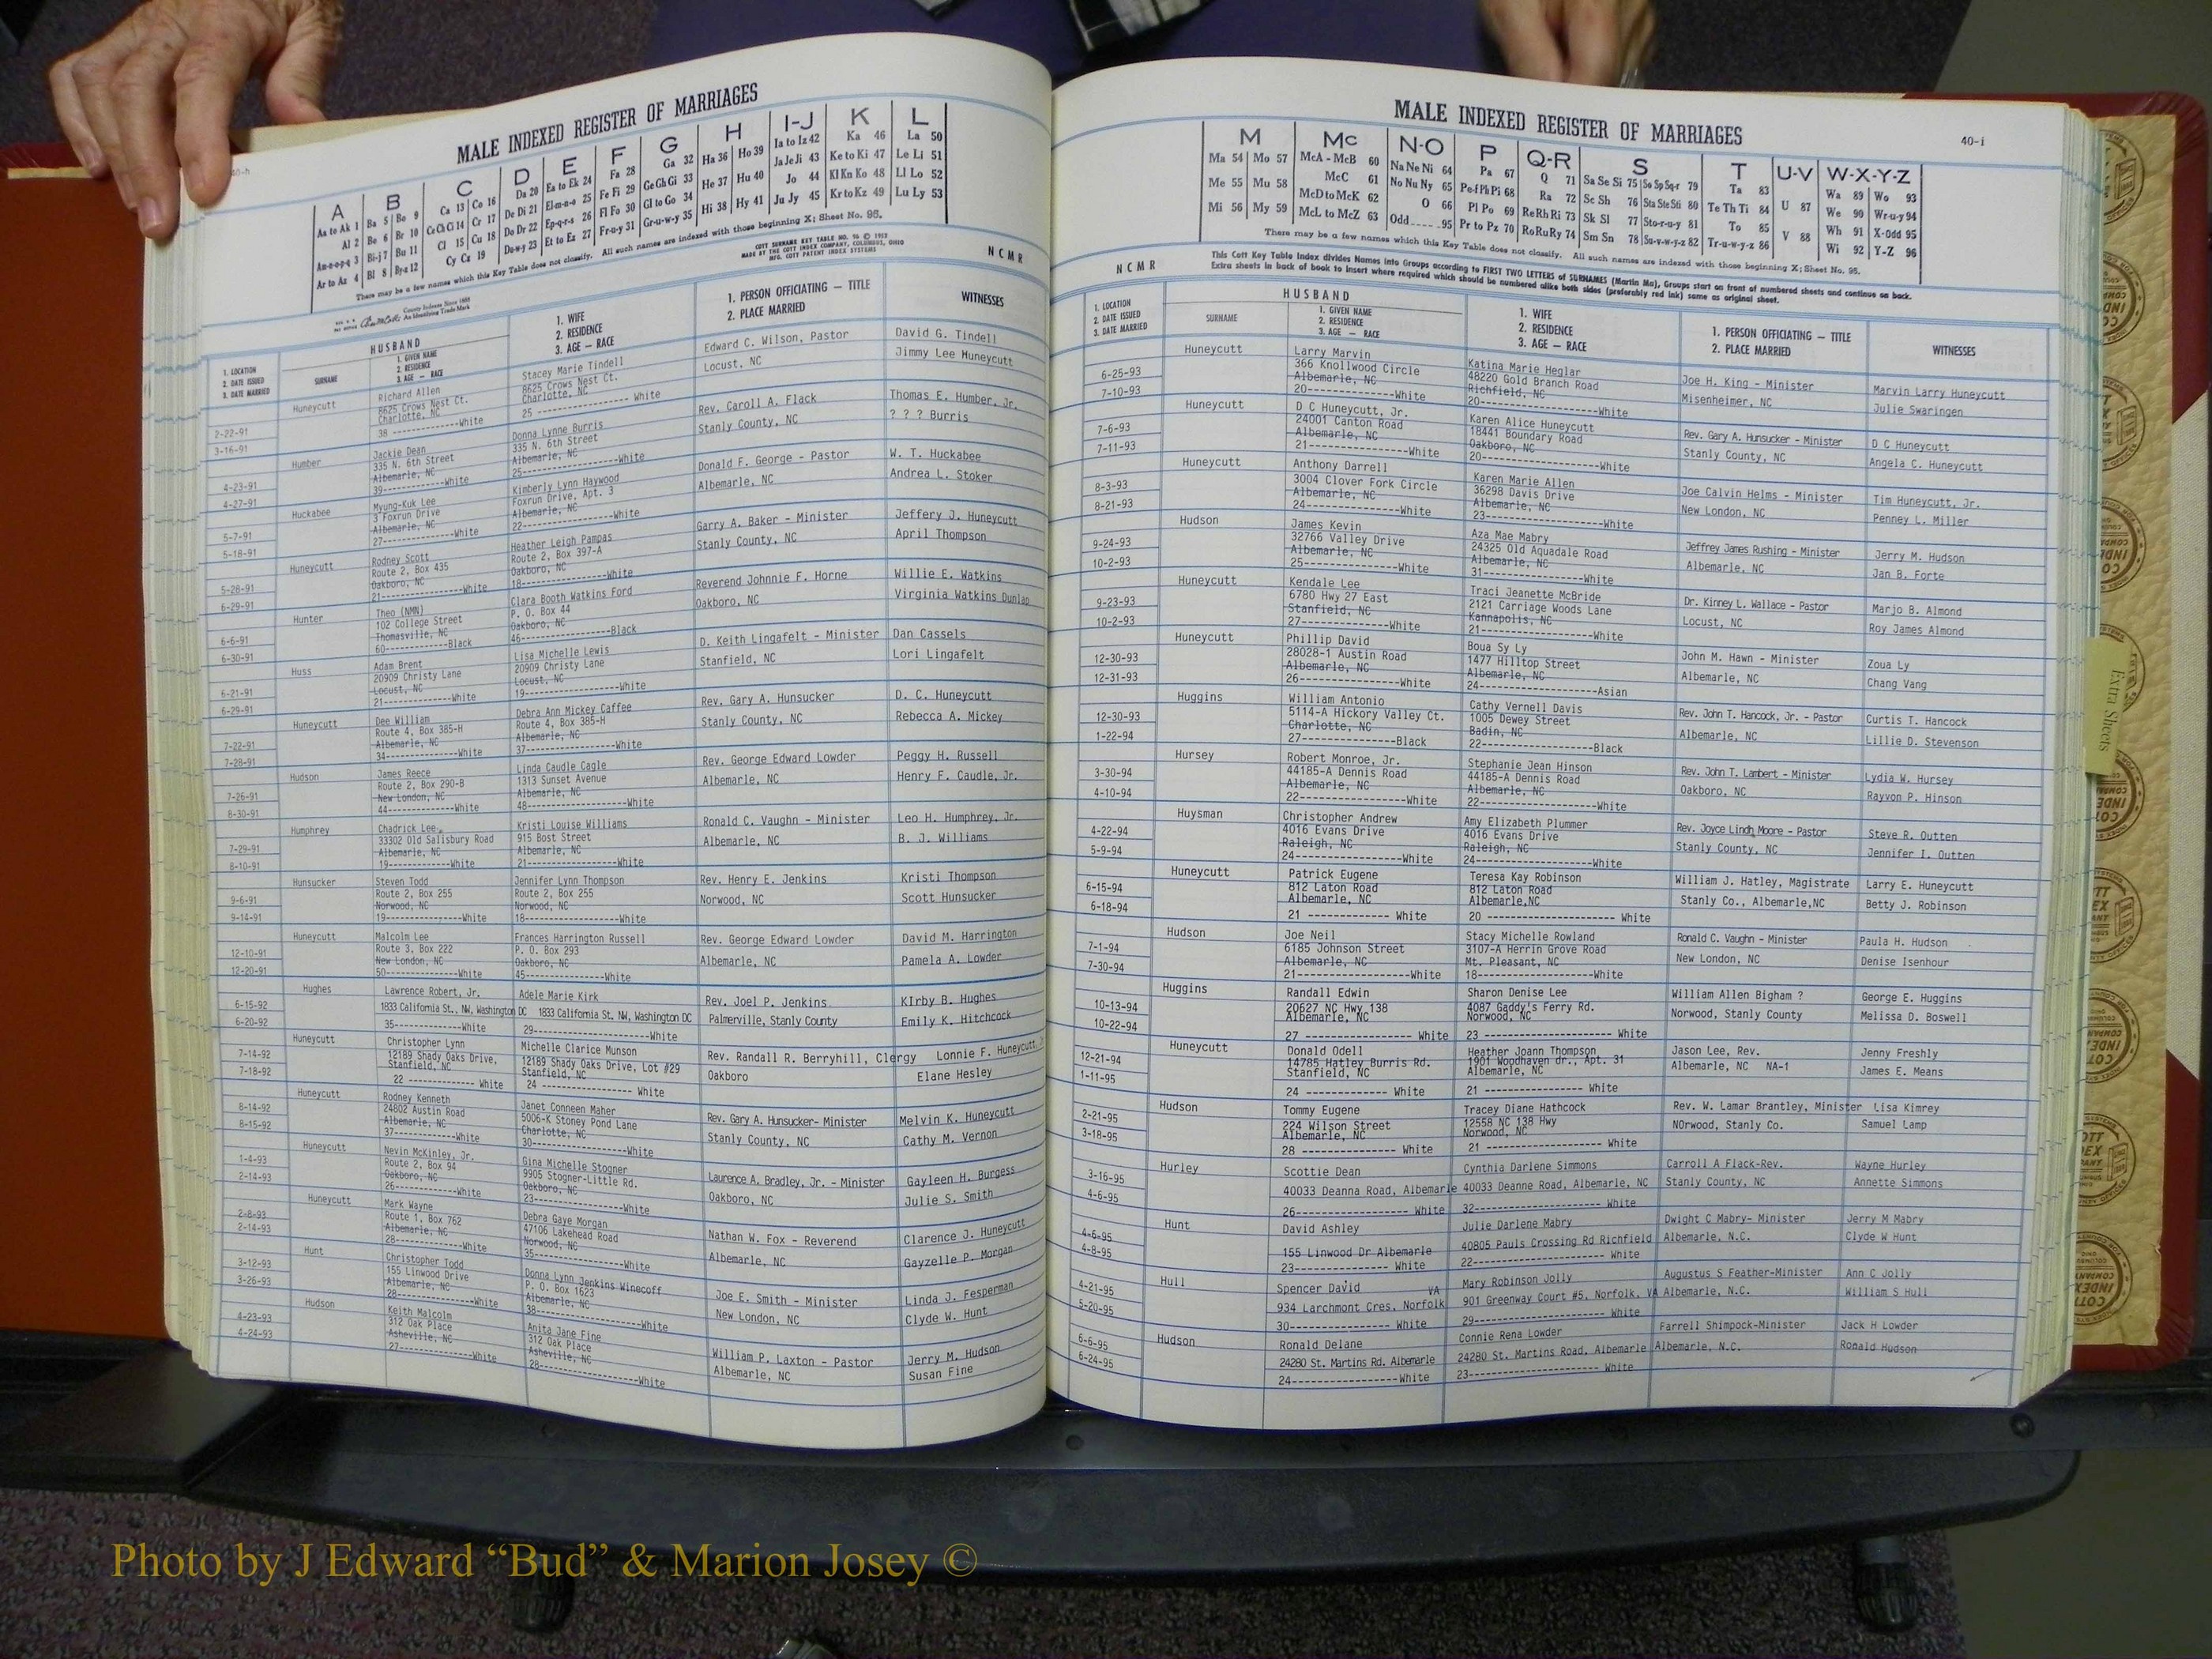 40-h
MALE INDEXED REGISTER OF MARRIAGES
A B C D E F G H I-J K L
Aa to Ak 1 Ba 5 Bo 9 Ca 13 Co 16 Da 20 Ea to Ek 24 Fa 28 Ga 32 Ha 36 Ho 39 Ia to Iz 42 Ka 46 La 50
Al 2 Be 6 Br 10 Ce Ch Ci 14 Cr 17 De Di 21 El-m-n-o 25 Fe Fi 29 Ge Gh Gi 33 He 37 Hu 40 Ja Je Ji 43 Ke to Ki 47 Le Li 51
Am-n-o-p-q 3 Bi-j 7 Bu 11 Cl 15 Cu 18 Do Dr 22 Ep-q-r-s 26 Fl Fo 30 Gl to Go 34 Hi 38 Hy 41 Jo 44 Kl Kn Ko 48 Ll Lo 52
Ar to Az 4 Bl 8 By-z 12 Cy Cz 19 Du-w-y 23 Et to Ez 27 Fr-u-y 31 Gr-u-w-y 35 Ju Jy 45 Kr to Kz 49 Lu Ly 53
There may be a few names which this Key Table does not classify. All such names are indexed with those beginning X; Sheet No. 95.
COTT SURNAME KEY TABLE NO. 96 © 1953
MADE BY THE COTT INDEX COMPANY, COLUMBUS, OHIO
MFG. COTT PATENT INDEX SYSTEMS
County Indexes Since 1888
An Identifying Trade Mark
NCMR
1. LOCATION
2. DATE ISSUED
3. DATE MARRIED
HUSBAND
SURNAME
1. GIVEN NAME
2. RESIDENCE
3. AGE — RACE
1. WIFE
2. RESIDENCE
3. AGE — RACE
1. PERSON OFFICIATING — TITLE
2. PLACE MARRIED
WITNESSES
Huneycutt Richard Allen Stacey Marie Tindell Edward C. Wilson, Pastor David G. Tindell
8625 Crows Nest Ct. 8625 Crows Nest Ct. Locust, NC Jimmy Lee Huneycutt
2-22-91 Charlotte, NC Charlotte, NC
3-16-91 38 ------------White 25 ------------ White
Humber Jackie Dean Donna Lynne Burris Rev. Caroll A. Flack Thomas E. Humber, Jr.
335 N. 6th Street 335 N. 6th Street Stanly County, NC ? ? ? Burris
4-23-91 Albemarle, NC Albemarle, NC
4-27-91 39------------White 25------------White
Huckabee Myung-Kuk Lee Kimberly Lynn Haywood Donald F. George - Pastor W. T. Huckabee
3 Foxrun Drive Foxrun Drive, Apt. 3 Albemarle, NC Andrea L. Stoker
5-7-91 Albemarle, NC Albemarle, NC
5-18-91 27------------White 22------------White
Huneycutt Rodney Scott Heather Leigh Pampas Garry A. Baker - Minister Jeffery J. Huneycutt
Route 2, Box 435 Route 2, Box 397-A Stanly County, NC April Thompson
5-28-91 Oakboro, NC Oakboro, NC
6-29-91 21------------White 18------------White
Hunter Theo (NMN) Clara Booth Watkins Ford Reverend Johnnie F. Horne Willie E. Watkins
102 College Street P. O. Box 44 Oakboro, NC Virginia Watkins Dunlap
6-6-91 Thomasville, NC Oakboro, NC
6-30-91 60------------Black 46------------Black
Huss Adam Brent Lisa Michelle Lewis D. Keith Lingafelt - Minister Dan Cassels
20909 Christy Lane 20909 Christy Lane Stanfield, NC Lori Lingafelt
6-21-91 Locust, NC Locust, NC
6-29-91 21------------White 19------------White
Huneycutt Dee William Debra Ann Mickey Caffee Rev. Gary A. Hunsucker D. C. Huneycutt
Route 4, Box 385-H Route 4, Box 385-H Stanly County, NC Rebecca A. Mickey
7-22-91 Albemarle, NC Albemarle, NC
7-28-91 34------------White 37------------White
Hudson James Reece Linda Caudle Cagle Rev. George Edward Lowder Peggy H. Russell
Route 2, Box 290-B 1313 Sunset Avenue Albemarle, NC Henry F. Caudle, Jr.
7-26-91 New London, NC Albemarle, NC
8-30-91 44------------White 48------------White
Humphrey Chadrick Lee Kristi Louise Williams Ronald C. Vaughn - Minister Leo H. Humphrey, Jr.
33302 Old Salisbury Road 915 Bost Street Albemarle, NC B. J. Williams
7-29-91 Albemarle, NC Albemarle, NC
8-10-91 19------------White 21------------White
Hunsucker Steven Todd Jennifer Lynn Thompson Rev. Henry E. Jenkins Kristi Thompson
9-6-91 Route 2, Box 255 Route 2, Box 255 Norwood, NC Scott Hunsucker
Norwood, NC Norwood, NC
9-14-91 19------------White 18------------White
Huneycutt Malcolm Lee Frances Harrington Russell Rev. George Edward Lowder David M. Harrington
12-10-91 Route 3, Box 222 P. O. Box 293 Albemarle, NC Pamela A. Lowder
New London, NC Oakboro, NC
12-20-91 50------------White 45------------White
Hughes Lawrence Robert, Jr. Adele Marie Kirk Rev. Joel P. Jenkins KIrby B. Hughes
6-15-92 1833 California St., NW, Washington DC 1833 California St. NW, Washington DC Palmerville, Stanly County Emily K. Hitchcock
6-20-92 35------------White 29------------White
Huneycutt Christopher Lynn Michelle Clarice Munson Rev. Randall R. Berryhill, Clergy Lonnie F. Huneycutt,
7-14-92 12189 Shady Oaks Drive, 12189 Shady Oaks Drive, Lot #29 Oakboro Elane Hesley
7-18-92 Stanfield, NC Stanfield, NC
22 ------------ White 24 ------------ White
Huneycutt Rodney Kenneth Janet Conneen Maher Rev. Gary A. Hunsucker- Minister Melvin K. Huneycutt
8-14-92 24802 Austin Road 5006-K Stoney Pond Lane Stanly County, NC Cathy M. Vernon
8-15-92 Albemarle, NC Charlotte, NC
37------------White 30------------White
Huneycutt Nevin McKinley, Jr. Gina Michelle Stogner Laurence A. Bradley, Jr. - Minister Gayleen H. Burgess
1-4-93 Route 2, Box 94 9905 Stogner-Little Rd. Oakboro, NC Julie S. Smith
2-14-93 Oakboro, NC Oakboro, NC
26------------White 23------------White
Huneycutt Mark Wayne Debra Gaye Morgan Nathan W. Fox - Reverend Clarence J. Huneycutt
2-8-93 Route 1, Box 762 47106 Lakehead Road Albemarle, NC Gayzelle P. Morgan
2-14-93 Albemarle, NC Norwood, NC
28------------White 35------------White
Hunt Christopher Todd Donna Lynn Jenkins Winecoff Joe E. Smith - Minister Linda J. Fesperman
3-12-93 155 Linwood Drive P. O. Box 1623 New London, NC Clyde W. Hunt
3-26-93 Albemarle, NC Albemarle, NC
28------------White 38------------White
Hudson Keith Malcolm Anita Jane Fine William P. Laxton - Pastor Jerry M. Hudson
4-23-93 312 Oak Place 312 Oak Place Albemarle, NC Susan Fine
4-24-93 Asheville, NC Asheville, NC
27------------White 28------------White
MALE INDEXED REGISTER OF MARRIAGES
40-i
M Mc N-O P Q-R S T U-V W-X-Y-Z
Ma 54 Mo 57 McA - McB 60 Na Ne Ni 64 Pa 67 Q 71 Sa Se Si 75 So Sp Sq-r 79 Ta 83 Wa 89 Wo 93
Me 55 Mu 58 McC 61 No Nu Ny 65 Pe-f Ph Pi 68 Ra 72 Sc Sh 76 Sta Ste Sti 80 Te Th Ti 84 U 87 We 90 Wr-u-y 94
Mi 56 My 59 McD to McK 62 O 66 Pl Po 69 Re Rh Ri 73 Sk Sl 77 Sto-r-u-y 81 To 85 V 88 Wh 91 X-Odd 95
McL to McZ 63 Odd 95 Pr to Pz 70 Ro Ru Ry 74 Sm Sn 78 Su-v-w-y-z 82 Tr-u-w-y-z 86 Wi 92 Y-Z 96
There may be a few names which this Key Table does not classify. All such names are indexed with those beginning X; Sheet No. 95.
NCMR
This Cott Key Table Index divides Names into Groups according to FIRST TWO LETTERS of SURNAMES (Martin Ma), Groups start on front of numbered sheets and continue on back.
Extra sheets in back of book to insert where required which should be numbered alike both sides (preferably red ink) same as original sheet.
1. LOCATION
2. DATE ISSUED
3. DATE MARRIED
HUSBAND
SURNAME
1. GIVEN NAME
2. RESIDENCE
3. AGE — RACE
1. WIFE
2. RESIDENCE
3. AGE — RACE
1. PERSON OFFICIATING — TITLE
2. PLACE MARRIED
WITNESSES
Huneycutt Larry Marvin Katina Marie Heglar Joe H. King - Minister Marvin Larry Huneycutt
6-25-93 366 Knollwood Circle 48220 Gold Branch Road Misenheimer, NC Julie Swaringen
7-10-93 Albemarle, NC Richfield, NC
20------------White 20------------White
Huneycutt D C Huneycutt, Jr. Karen Alice Huneycutt Rev. Gary A. Hunsucker - Minister D C Huneycutt
7-6-93 24001 Canton Road 18441 Boundary Road Stanly County, NC Angela C. Huneycutt
7-11-93 Albemarle, NC Oakboro, NC
21------------White 20------------White
Huneycutt Anthony Darrell Karen Marie Allen Joe Calvin Helms - Minister Tim Huneycutt, Jr.
8-3-93 3004 Clover Fork Circle 36298 Davis Drive New London, NC Penney L. Miller
8-21-93 Albemarle, NC Albemarle, NC
24------------White 23------------White
Hudson James Kevin Aza Mae Mabry Jeffrey James Rushing - Minister Jerry M. Hudson
9-24-93 32766 Valley Drive 24325 Old Aquadale Road Albemarle, NC Jan B. Forte
10-2-93 Albemarle, NC Albemarle, NC
25------------White 31------------White
Huneycutt Kendale Lee Traci Jeanette McBride Dr. Kinney L. Wallace - Pastor Marjo B. Almond
9-23-93 6780 Hwy 27 East 2121 Carriage Woods Lane Locust, NC Roy James Almond
10-2-93 Stanfield, NC Kannapolis, NC
27------------White 21------------White
Huneycutt Phillip David Boua Sy Ly John M. Hawn - Minister Zoua Ly
12-30-93 28028-1 Austin Road 1477 Hilltop Street Albemarle, NC Chang Vang
12-31-93 Albemarle, NC Albemarle, NC
26------------White 24------------Asian
Huggins William Antonio Cathy Vernell Davis Rev. John T. Hancock, Jr. - Pastor Curtis T. Hancock
12-30-93 5114-A Hickory Valley Ct. 1005 Dewey Street Albemarle, NC Lillie D. Stevenson
1-22-94 Charlotte, NC Badin, NC
27------------Black 22------------Black
Hursey Robert Monroe, Jr. Stephanie Jean Hinson Rev. John T. Lambert - Minister Lydia W. Hursey
3-30-94 44185-A Dennis Road 44185-A Dennis Road Oakboro, NC Rayvon P. Hinson
4-10-94 Albemarle, NC Albemarle, NC
22------------White 22------------White
Huysman Christopher Andrew Amy Elizabeth Plummer Rev. Joyce Lindh Moore - Pastor Steve R. Outten
4-22-94 4016 Evans Drive 4016 Evans Drive Stanly County, NC Jennifer I. Outten
5-9-94 Raleigh, NC Raleigh, NC
24------------White 24------------White
Huneycutt Patrick Eugene Teresa Kay Robinson William J. Hatley, Magistrate Larry E. Huneycutt
6-15-94 812 Laton Road 812 Laton Road Stanly Co., Albemarle,NC Betty J. Robinson
6-18-94 Albemarle, NC Albemarle,NC
21 ------------ White 20 ------------ White
Hudson Joe Neil Stacy Michelle Rowland Ronald C. Vaughn - Minister Paula H. Hudson
7-1-94 6185 Johnson Street 3107-A Herrin Grove Road New London, NC Denise Isenhour
7-30-94 Albemarle, NC Mt. Pleasant, NC
21------------White 18------------White
Huggins Randall Edwin Sharon Denise Lee William Allen Bigham ? George E. Huggins
10-13-94 20627 NC Hwy 138 4087 Gaddy's Ferry Rd. Norwood, Stanly County Melissa D. Boswell
10-22-94 Albemarle, NC Norwood, NC
27 ------------ White 23 ------------ White
Huneycutt Donald Odell Heather Joann Thompson Jason Lee, Rev. Jenny Freshly
12-21-94 14785 Hatley Burris Rd. 1901 Woodhaven dr., Apt. 31 Albemarle, NC NA-1 James E. Means
1-11-95 Stanfield, NC Albemarle, NC
24 ------------ White 21 ------------ White
Hudson Tommy Eugene Tracey Diane Hathcock Rev. W. Lamar Brantley, Minister Lisa Kimrey
2-21-95 224 Wilson Street 12558 NC 138 Hwy NOrwood, Stanly Co. Samuel Lamp
3-18-95 Albemarle, NC Norwood, NC
28 ------------ White 21 ------------ White
Hurley Scottie Dean Cynthia Darlene Simmons Carroll A Flack-Rev. Wayne Hurley
3-16-95 40033 Deanna Road, Albemarle 40033 Deanne Road, Albemarle, NC Stanly County, NC Annette Simmons
4-6-95 26------------ White 32------------ White
Hunt David Ashley Julie Darlene Mabry Dwight C Mabry- Minister Jerry M Mabry
4-6-95 155 Linwood Dr Albemarle 40805 Pauls Crossing Rd Richfield Albemarle, N.C. Clyde W Hunt
4-8-95 23------------ White 22------------ White
Hull Spencer David Mary Robinson Jolly Augustus S Feather-Minister Ann C Jolly
4-21-95 934 Larchmont Cres, Norfolk VA 901 Greenway Court #5, Norfolk, VA Albemarle, N.C. William S Hull
5-20-95 30------------ White 29------------ White
Hudson Ronald Delane Connie Rena Lowder Farrell Shimpock-Minister Jack H Lowder
6-6-95 24280 St. Martins Rd, Albemarle 24280 St. Martins Road, Albemarle Albemarle, N.C. Ronald Hudson
6-24-95 24------------White 23------------ White
Extra Sheets
Photo by J Edward “Bud” & Marion Josey ©